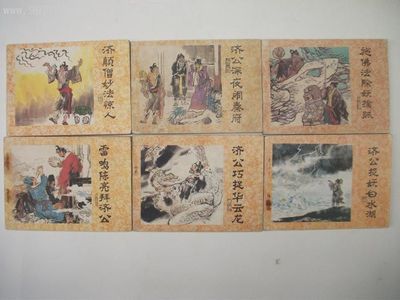 济颠僧妙法惊人
济公深夜闹秦府
施佛法除妖擒贼
雷鸣陈亮拜济公
济公巧捉华云龙
济公捉妖白水湖